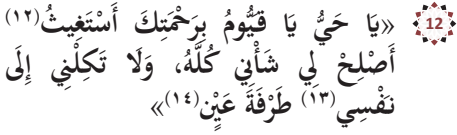 12 «يَا حَيُّ يَا قَيُّومُ بِرَحْمَتِكَ أَسْتَغِيثُ(١٢)
أَصْلِحْ لِي شَأْنِي كُلَّهُ، وَلَا تَكِلْنِي إِلَى
نَفْسِي(١٣) طَرْفَةَ عَيْنٍ(١٤)»